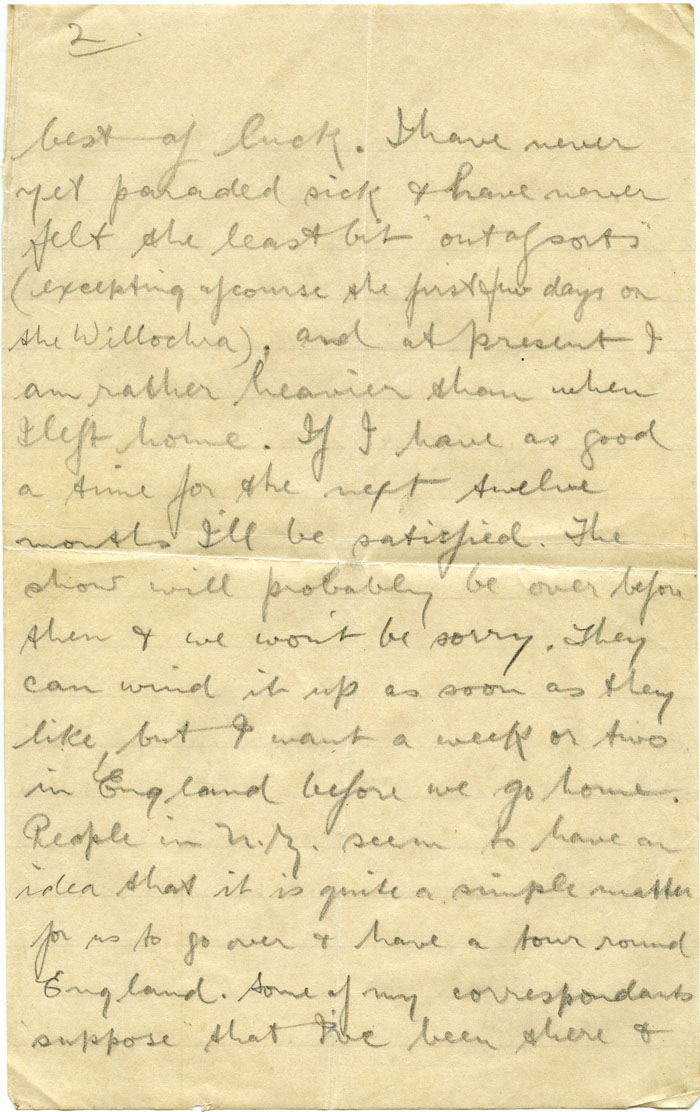 2.
best of luck. I have never
yet paraded sick & have never
felt the least bit "out of sorts"
(excepting of course the first few days on
the Willochra), and at present I
am rather heavier than when
I left home. If I have as good
a time for the next twelve
months I'll be satisfied. The
show will probably be over before
then & we won't be sorry. They
can wind it up as soon as they
like, but I want a week or two
in England before we go home.
People in N.Z. seem to have an
idea that it is quite a simple matter
for us to go over & have a tour round
England. Some of my correspondants
suppose that I've been there &